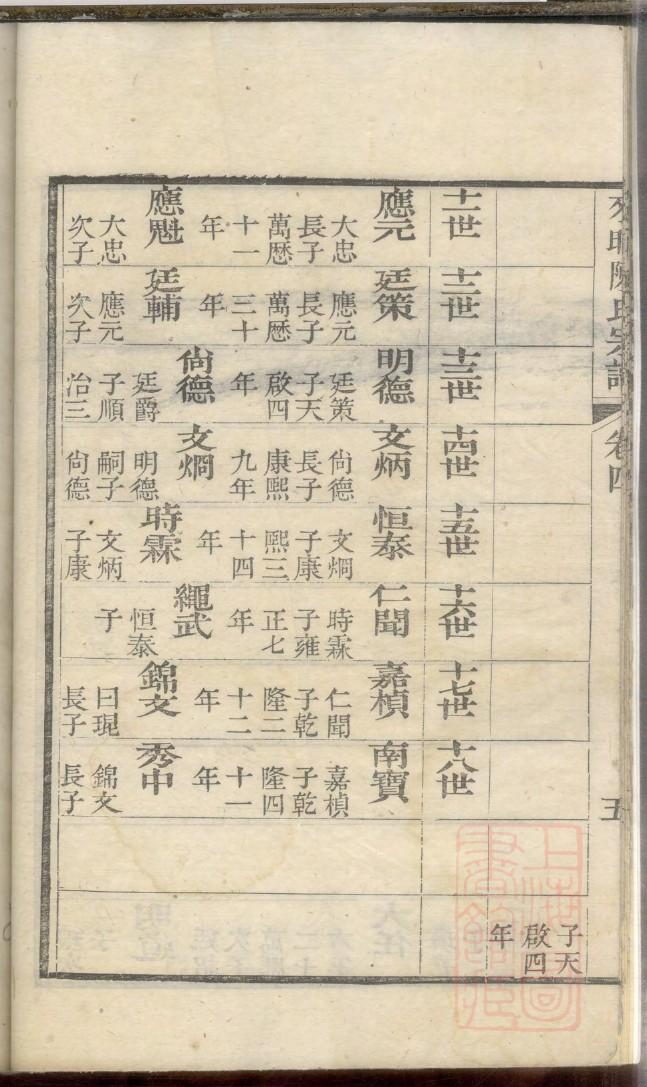 陳氏宗譜
卷四
五
子天
啟四
年
十一世
應元
大忠
長子
萬曆
十一
年
應魁
大忠
次子
十二世
廷策
應元
長子
萬曆
三十
年
廷輔
應元
次子
十三世
明德
廷策
子天
啟四
年
尙德
廷爵
子順
治三
十四世
文炳
尙德
長子
康熙
九年
文烱
明德
嗣子
尙德
十五世
恒泰
文烱
子康
熙三
十四
年
時霖
文炳
子康
十六世
仁聞
時霖
子雍
正七
年
繩武
恒泰
子
十七世
嘉楨
仁聞
子乾
隆二
十二
年
錦文
曰琨
長子
十八世
南寶
嘉楨
子乾
隆四
十一
年
秀中
錦文
長子